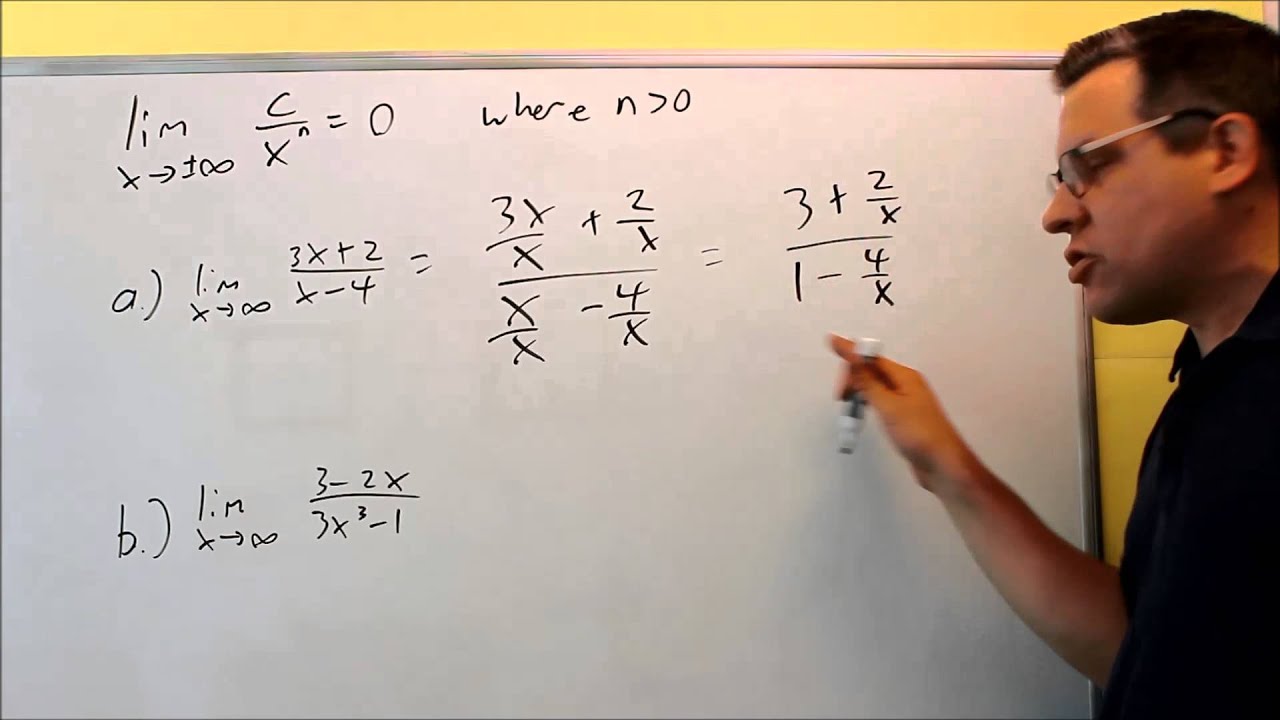 lim x→±∞ c/xⁿ = 0 where n>0
a.) lim x→∞ (3x+2)/(x-4) = (3x/x + 2/x)/(x/x - 4/x) = (3 + 2/x)/(1 - 4/x)
b.) lim x→∞ (3-2x)/(3x³-1)